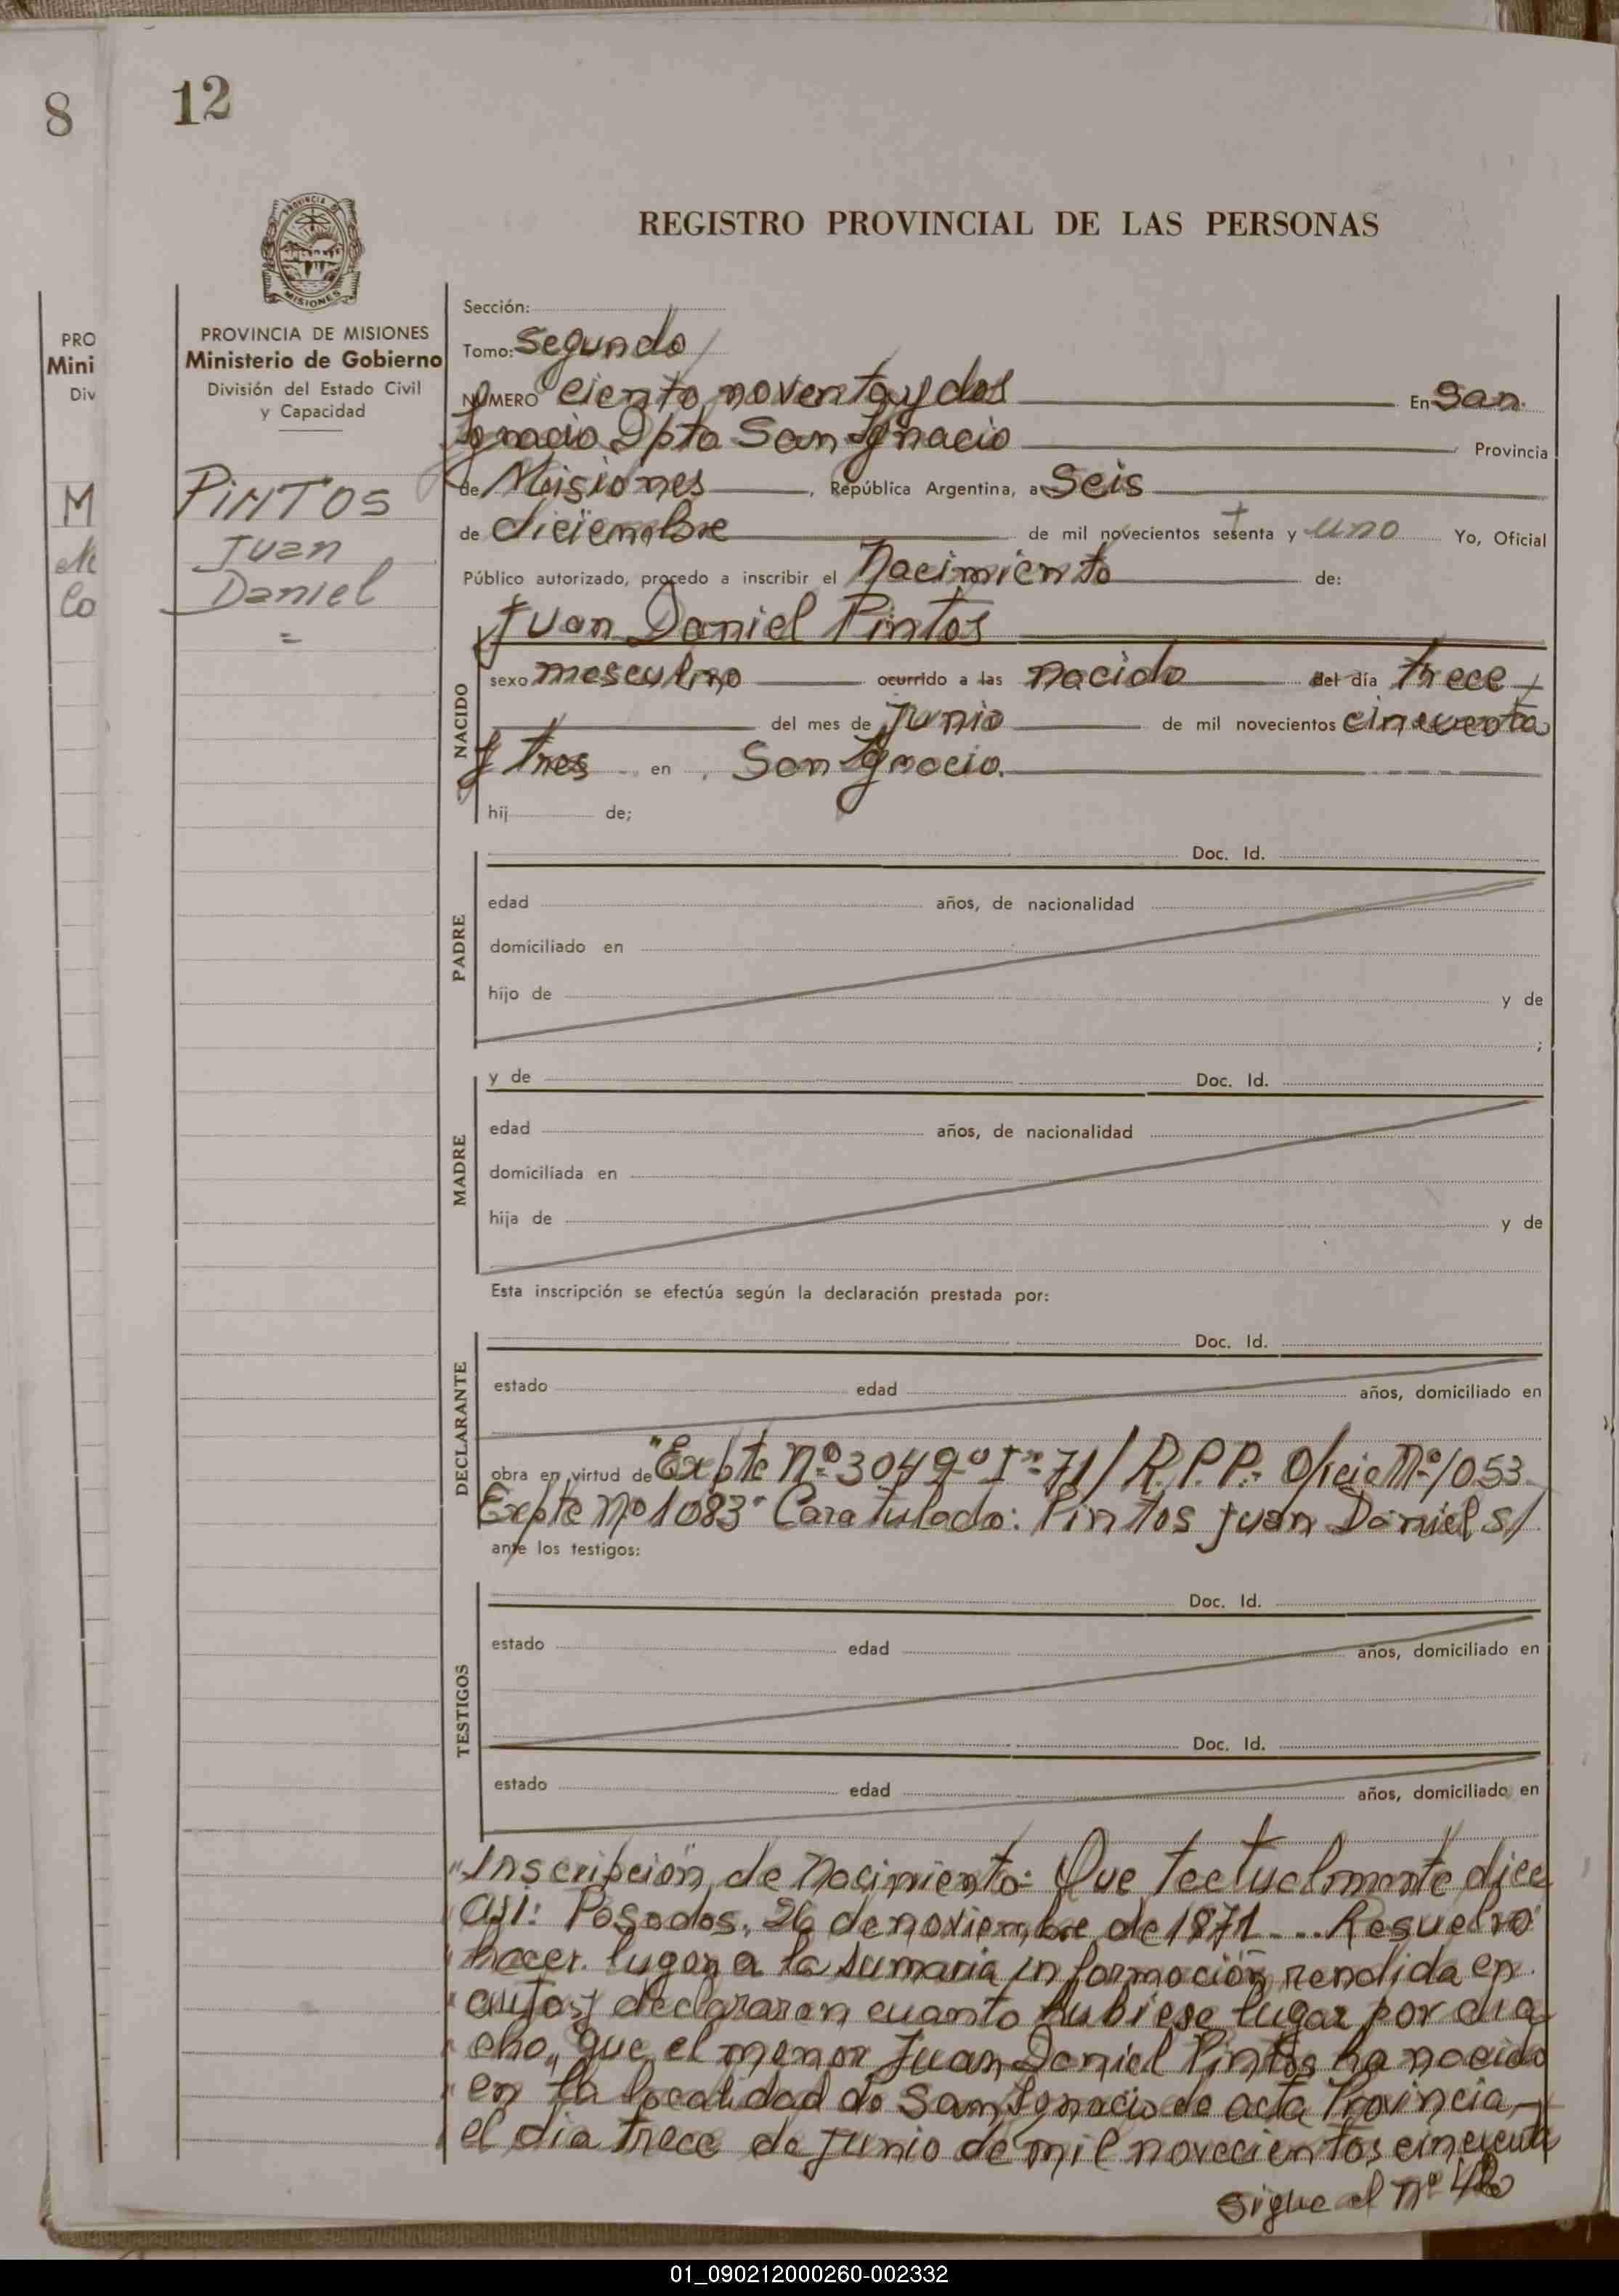 8
12
REGISTRO PROVINCIAL DE LAS PERSONAS
PROVINCIA DE MISIONES
Ministerio de Gobierno
División del Estado Civil
y Capacidad
PRO
Mini
Div
M
Co
PINTOS
Juan
Daniel
=
Sección:
Tomo: Segundo
NÚMERO Ciento noventa y dos En San
Ignacio Dpto San Ignacio Provincia
de Misiones, República Argentina, a Seis
de diciembre de mil novecientos sesenta y uno Yo, Oficial
Público autorizado, procedo a inscribir el Nacimiento de:
Juan Daniel Pintos
NACIDO
sexo masculino ocurrido a las nacido del día trece
del mes de Junio de mil novecientos cincuenta
y tres en San Ignacio.
hij de;
PADRE
Doc. Id.
edad años, de nacionalidad
domiciliado en
hijo de y de
;
MADRE
y de Doc. Id.
edad años, de nacionalidad
domiciliada en
hija de y de
Esta inscripción se efectúa según la declaración prestada por:
DECLARANTE
Doc. Id.
estado edad años, domiciliado en
obra en virtud de "Expte Nº 3049-I-71/R.P.P.- Oficio Nº 1053
Expte Nº 1083" Caratulado: Pintos Juan Daniel s/
ante los testigos:
TESTIGOS
Doc. Id.
estado edad años, domiciliado en
Doc. Id.
estado edad años, domiciliado en
"Inscripción de Nacimiento: Que tectualmente dice
asi: Posadas, 26 de noviembre de 1871.... Resuelvo
hacer lugar a la sumaria información rendida en
autos y declarar en cuanto hubiese lugar por
cho, que el menor Juan Daniel Pintos ha nacido
en la localidad de San Ignacio de acta Provincia
el dia trece de junio de mil novecientos cincuenta
sigue al Nº
01_090212000260-002332